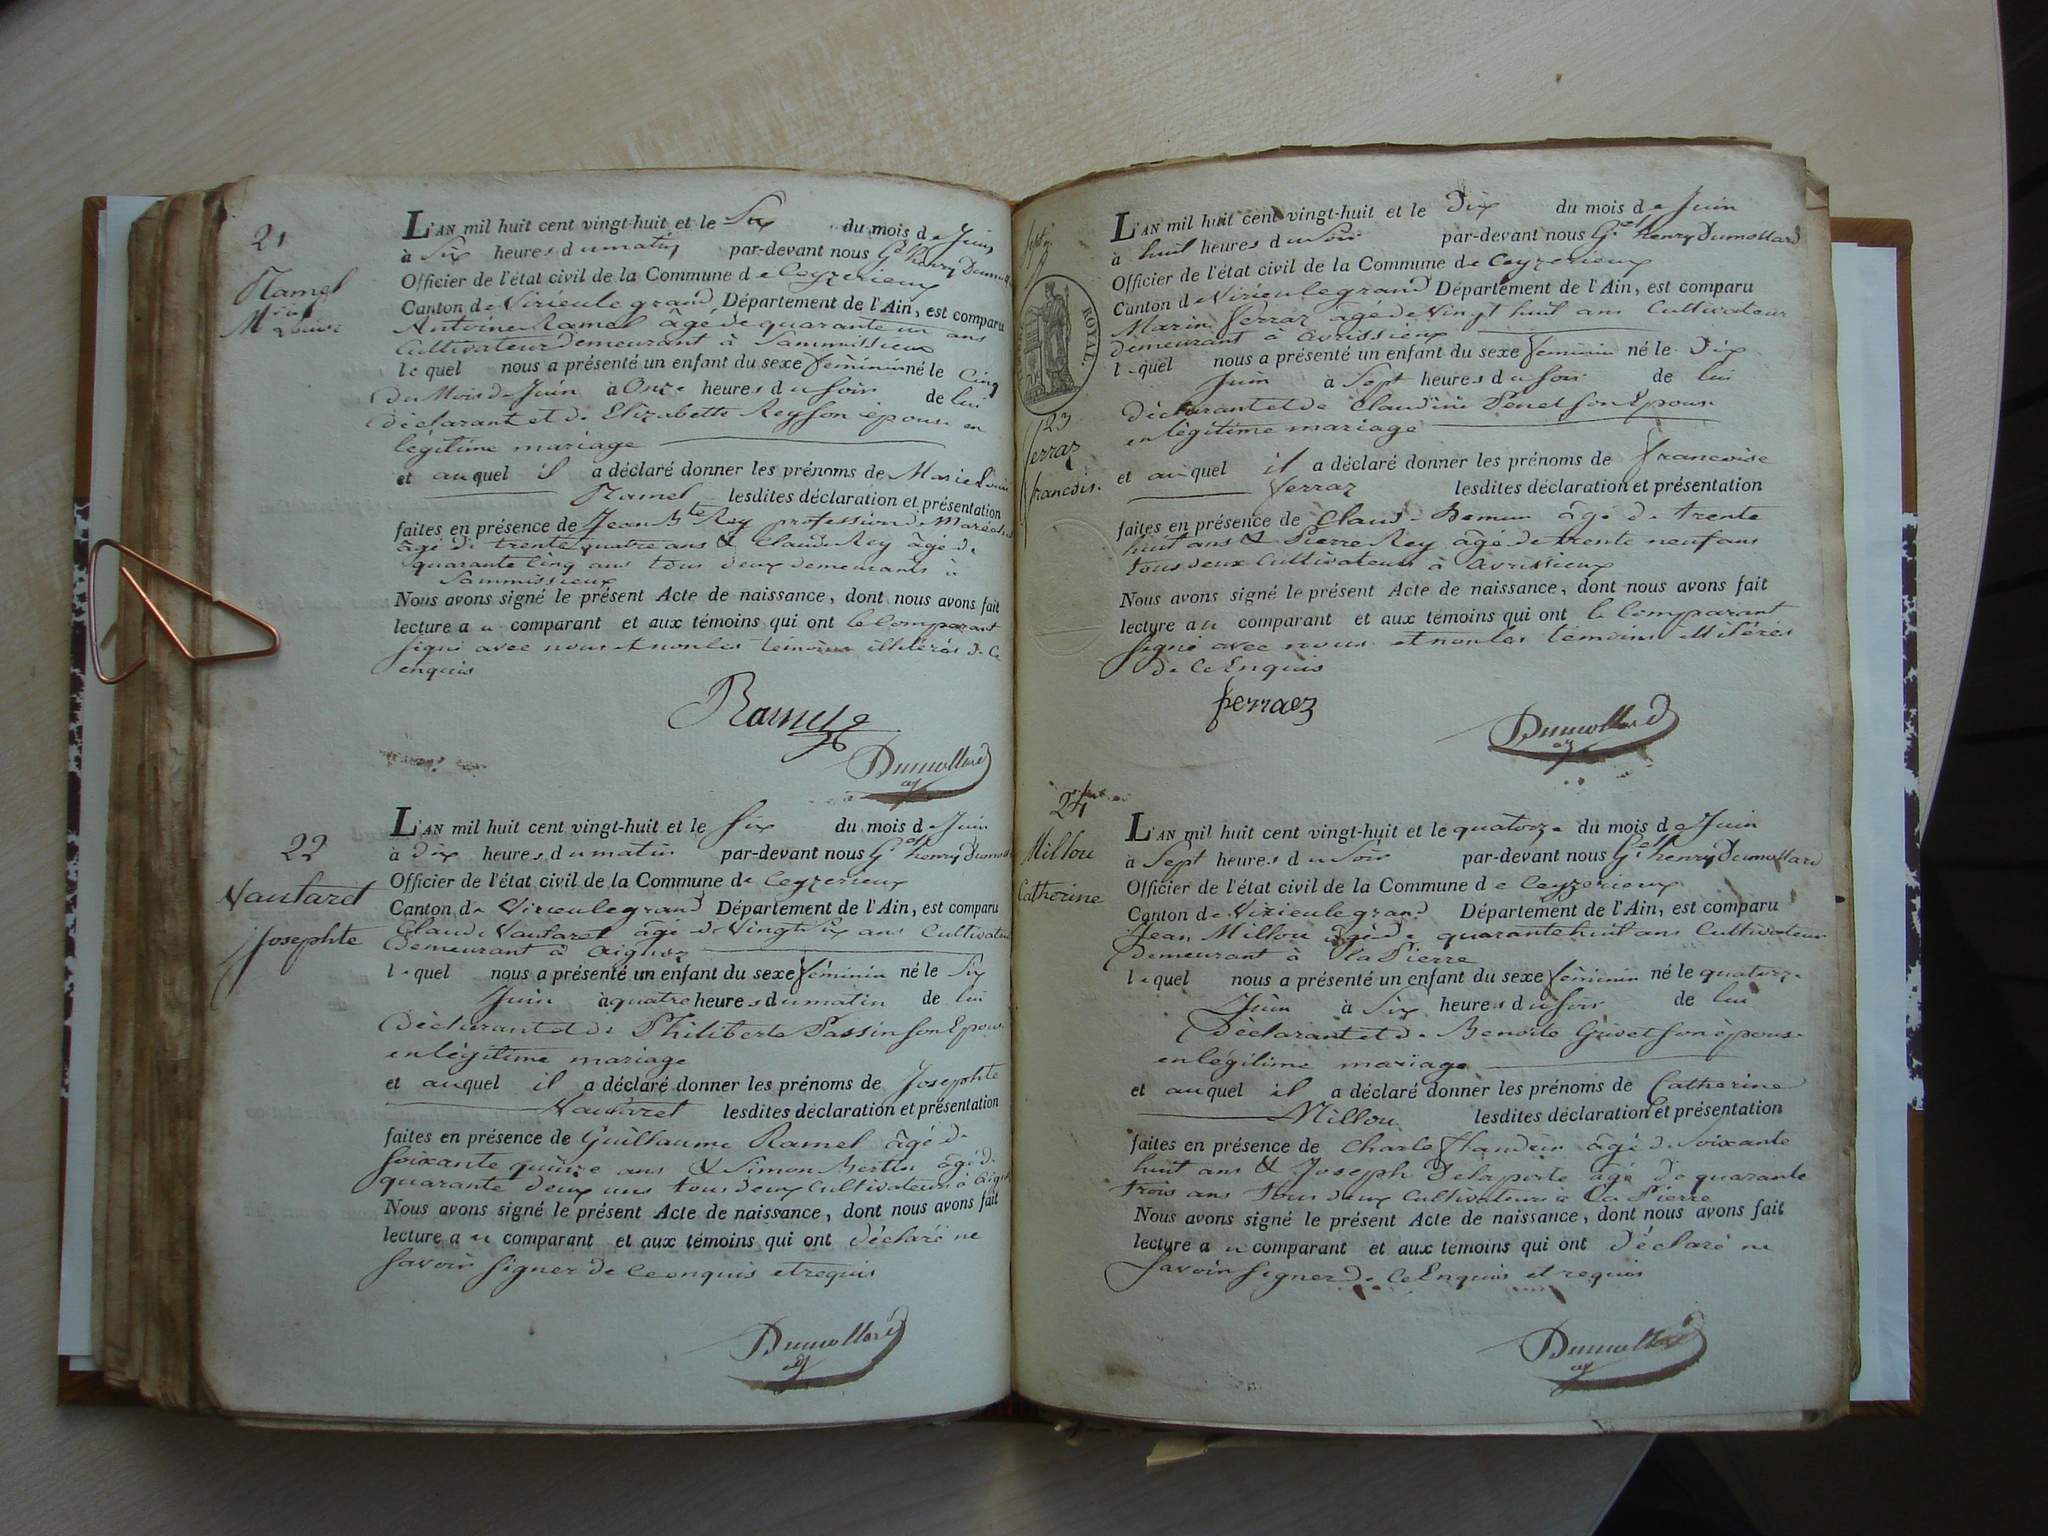 21
Ramel
Marie
Louise
L'AN mil huit cent vingt-huit et le Six du mois de Juin
à Six heures du matin par-devant nous Gel henry Dumollard
Officier de l'état civil de la Commune de Ceyzerieux
Canton de Virieulegrand Département de l'Ain, est comparu
Antoine Ramel âgé de quarante un ans
Cultivateur demeurant à Sammissieux
lequel nous a présenté un enfant du sexe féminin né le Cinq
du Mois de Juin à Onze heures du soir de lui
déclarant et de Elizabette Rey son épouse en
légitime mariage
et auquel il a déclaré donner les prénoms de Marie Louise
Ramel lesdites déclaration et présentation
faites en présence de Jean Bte Rey profession de Maréchal
âgé de trente quatre ans & Claude Rey âgé de
quarante Cinq ans tous deux demeurants à
Sammissieux
Nous avons signé le présent Acte de naissance, dont nous avons fait
lecture au comparant et aux témoins qui ont le Comparant
signé avec nous et non les témoins illitérés de Ce
enquis
Ramel
Dumollard
22
Vautaret
Josephte
L'AN mil huit cent vingt-huit et le Six du mois de Juin
à Dix heures du matin par-devant nous Gel henry Dumollard
Officier de l'état civil de la Commune de Ceyzerieux
Canton de Virieulegrand Département de l'Ain, est comparu
Claude Vautaret âgé de Vingt Six ans Cultivateur
demeurant à Aignoz
lequel nous a présenté un enfant du sexe féminin né le Six
Juin à quatre heures du matin de lui
Déclarant et de Philiberte Passin son Epouse
en légitime mariage
et auquel il a déclaré donner les prénoms de Josephte
Vautaret lesdites déclaration et présentation
faites en présence de Guillaume Ramel âgé de
soixante quinze ans & Simon Bertin âgé de
quarante deux ans tous deux Cultivateurs à Aignoz
Nous avons signé le présent Acte de naissance, dont nous avons fait
lecture au comparant et aux témoins qui ont déclaré ne
savoir signer de Ce enquis et requis
Dumollard
ROYAL.
23
ferraz
francois.
L'AN mil huit cent vingt-huit et le Dix du mois de Juin
à huit heures du Soir par-devant nous Gel henry Dumollard
Officier de l'état civil de la Commune de Ceyzerieux
Canton de Virieulegrand Département de l'Ain, est comparu
Marin ferraz âgé de Vingt huit ans Cultivateur
demeurant à avrissieux
lequel nous a présenté un enfant du sexe féminin né le Dix
Juin à Sept heures du Soir de lui
Déclarant et de Claudine Penet son Epouse
en légitime mariage
et auquel il a déclaré donner les prénoms de francoise
ferraz lesdites déclaration et présentation
faites en présence de Claude Bemun âgé de trente
huit ans & Pierre Rey âgé de trente neuf ans
tous deux Cultivateurs à avrissieux
Nous avons signé le présent Acte de naissance, dont nous avons fait
lecture au comparant et aux témoins qui ont le Comparant
signé avec nous et non les témoins illitérés
de Ce Enquis
ferraez
Dumollard
24
Millou
Catherine
L'AN mil huit cent vingt-huit et le quatorze du mois de Juin
à Sept heures du Soir par-devant nous Gel henry Dumollard
Officier de l'état civil de la Commune de Ceyzerieux
Canton de Virieulegrand Département de l'Ain, est comparu
Jean Millou âgé de quarante huit ans Cultivateur
Demeurant à la Pierre
lequel nous a présenté un enfant du sexe féminin né le quatorze
Juin à Six heures du soir de lui
Déclarant et de Benoite Grivet son épouse
en légitime mariage
et auquel il a déclaré donner les prénoms de Catherine
Millou lesdites déclaration et présentation
faites en présence de Charle flandrin âgé de Soixante
huit ans & Joseph Delaporte âgé de quarante
trois ans tous deux Cultivateurs à la Pierre
Nous avons signé le présent Acte de naissance, dont nous avons fait
lecture au comparant et aux témoins qui ont déclaré ne
Savoir signer de Ce Enquis et requis
Dumollard